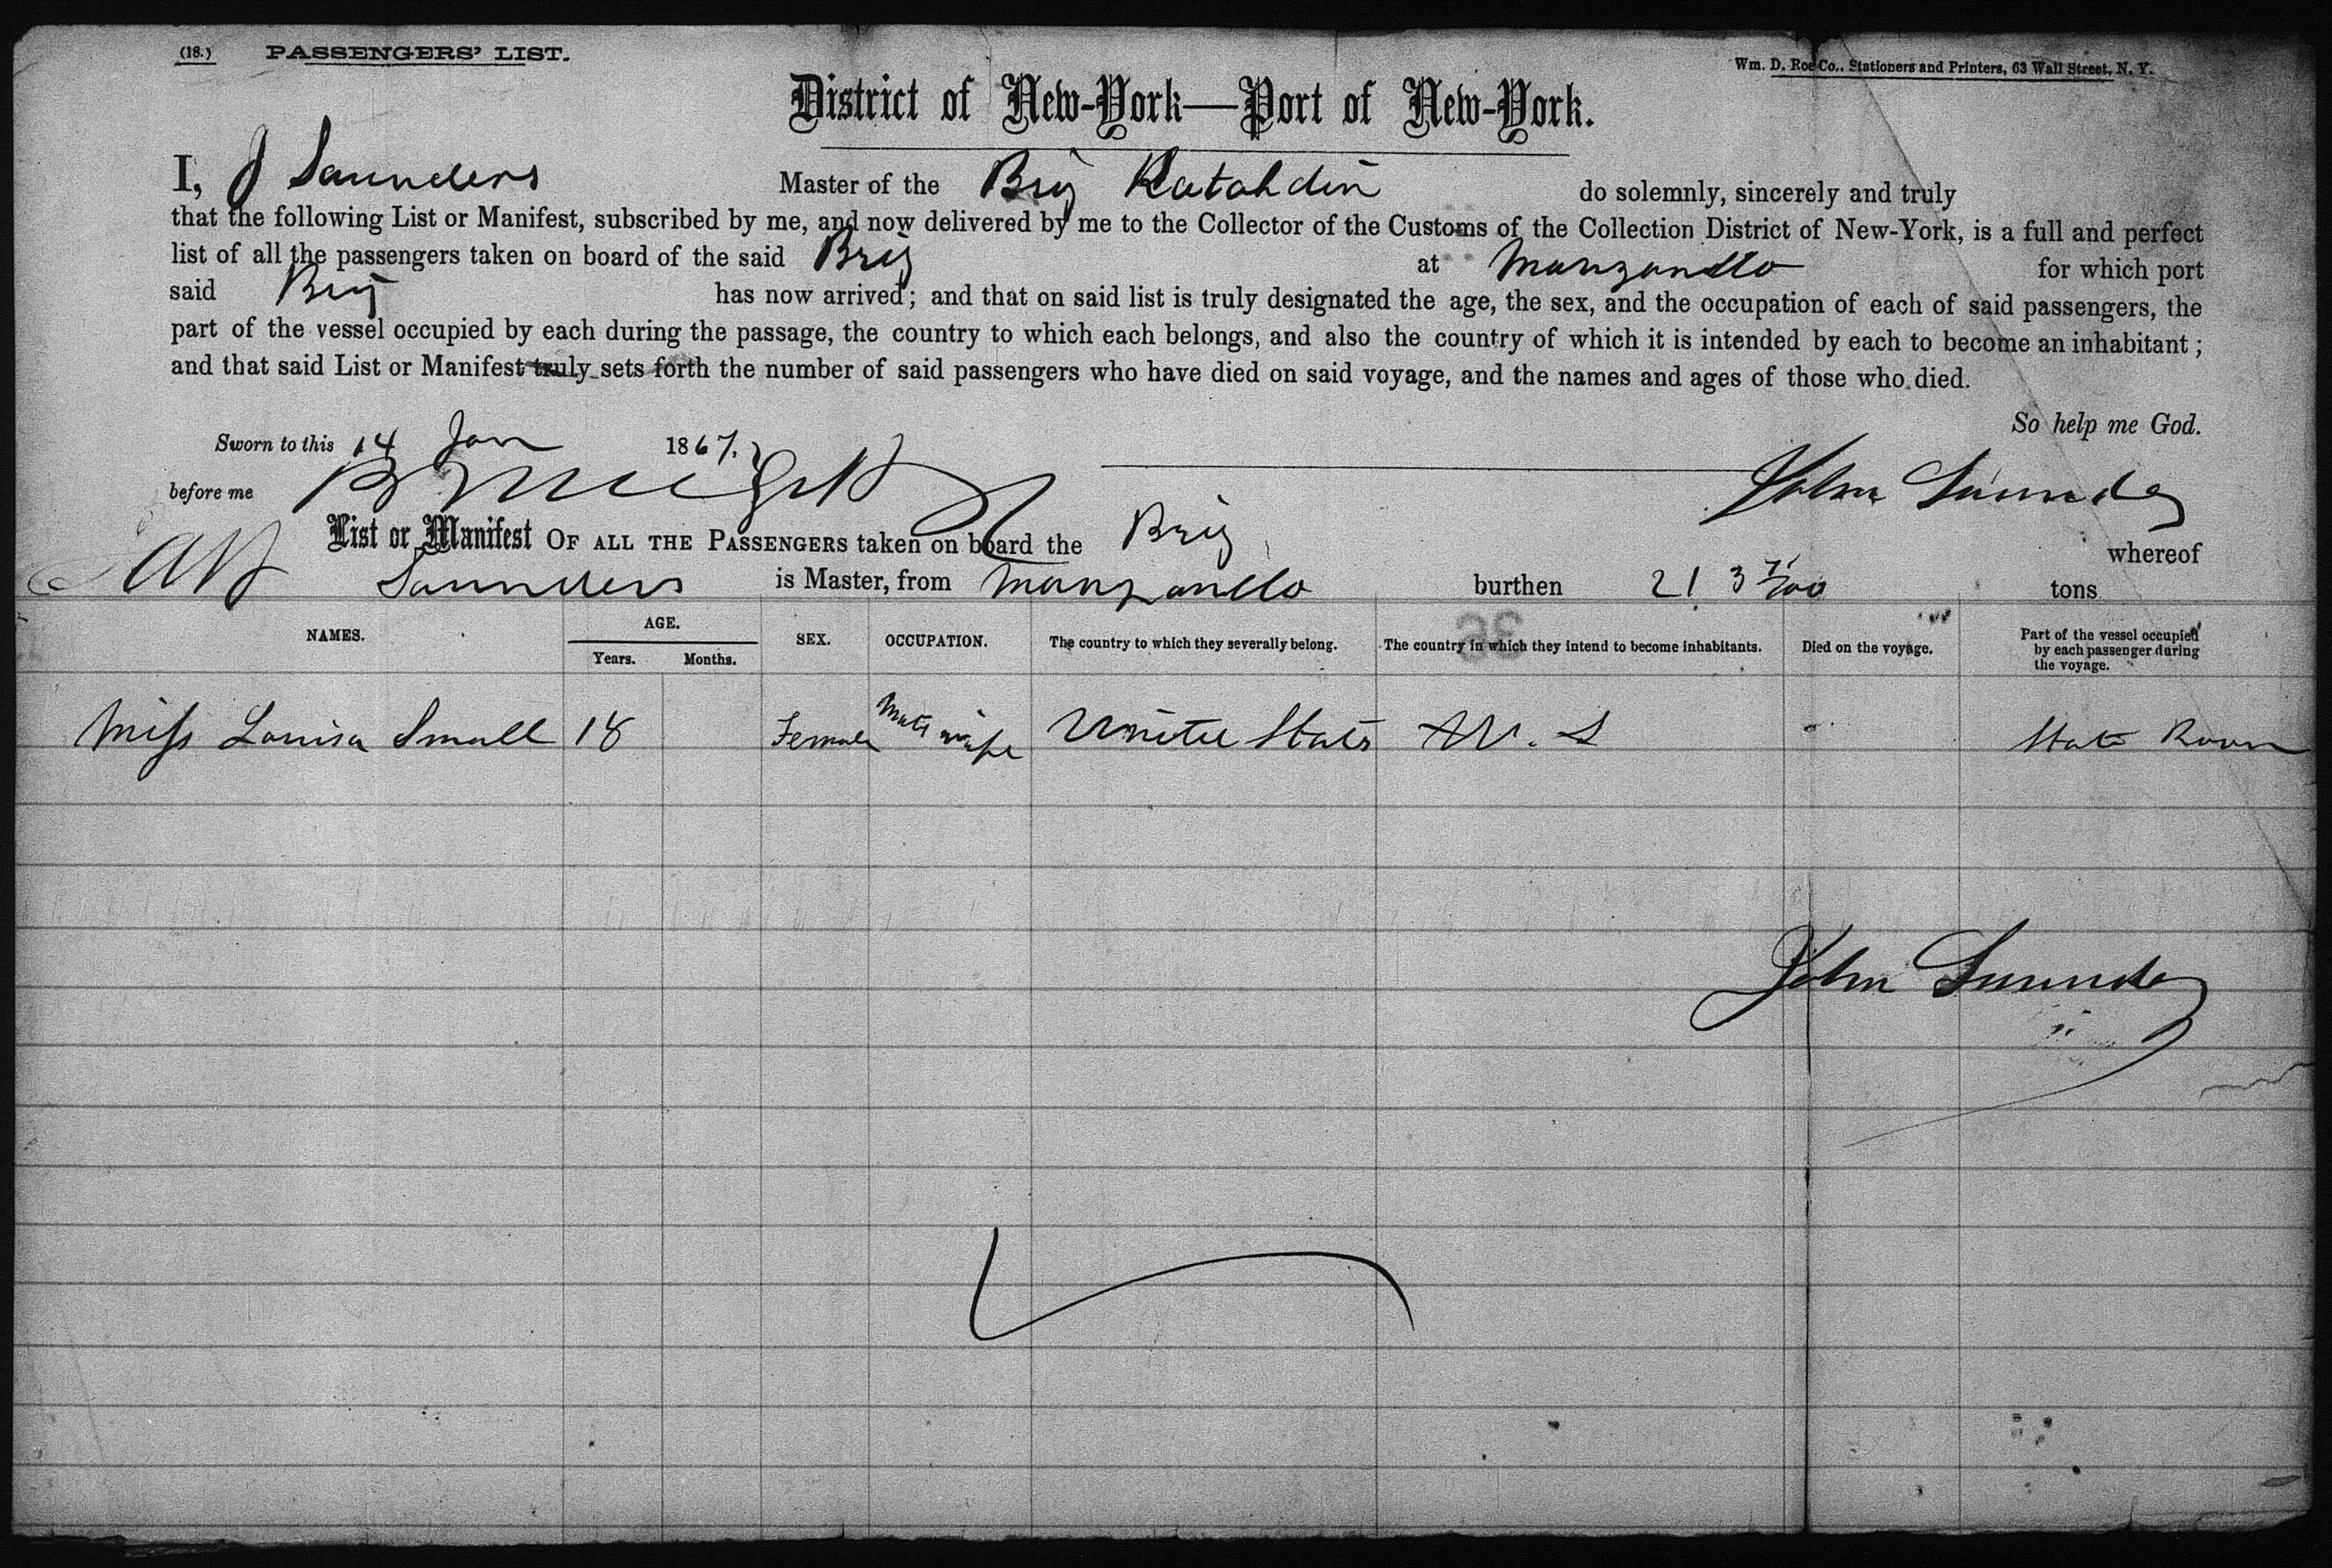 (18.) PASSENGERS' LIST.
Wm. D. Roe Co., Stationers and Printers, 63 Wall Street, N. Y.
District of New-York—Port of New-York.
I, J Saunders Master of the Brig Katahdin do solemnly, sincerely and truly
that the following List or Manifest, subscribed by me, and now delivered by me to the Collector of the Customs of the Collection District of New-York, is a full and perfect
list of all the passengers taken on board of the said Brig at Manzanillo for which port
said Brig has now arrived; and that on said list is truly designated the age, the sex, and the occupation of each of said passengers, the
part of the vessel occupied by each during the passage, the country to which each belongs, and also the country of which it is intended by each to become an inhabitant;
and that said List or Manifest truly sets forth the number of said passengers who have died on said voyage, and the names and ages of those who died.
So help me God.
Sworn to this 14 Jan 1867.
before me
John Saunders
List or Manifest OF ALL THE PASSENGERS taken on board the Brig whereof
Saunders is Master, from Manzanillo burthen 213 7/100 tons
36
NAMES. AGE. SEX. OCCUPATION. The country to which they severally belong. The country in which they intend to become inhabitants. Died on the voyage. Part of the vessel occupied by each passenger during the voyage.
Years. Months.
Miss Louisa Small 18 Female Mate wife United States U. S State Room
John Saunders